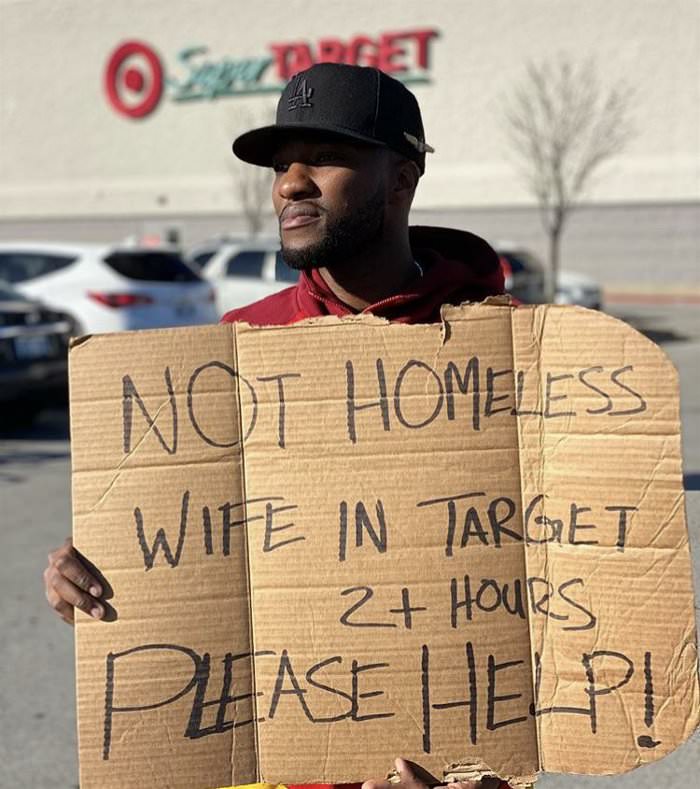 Super TARGET
LA
NOT HOMELESS
WIFE IN TARGET
2+ HOURS
PLEASE HELP!